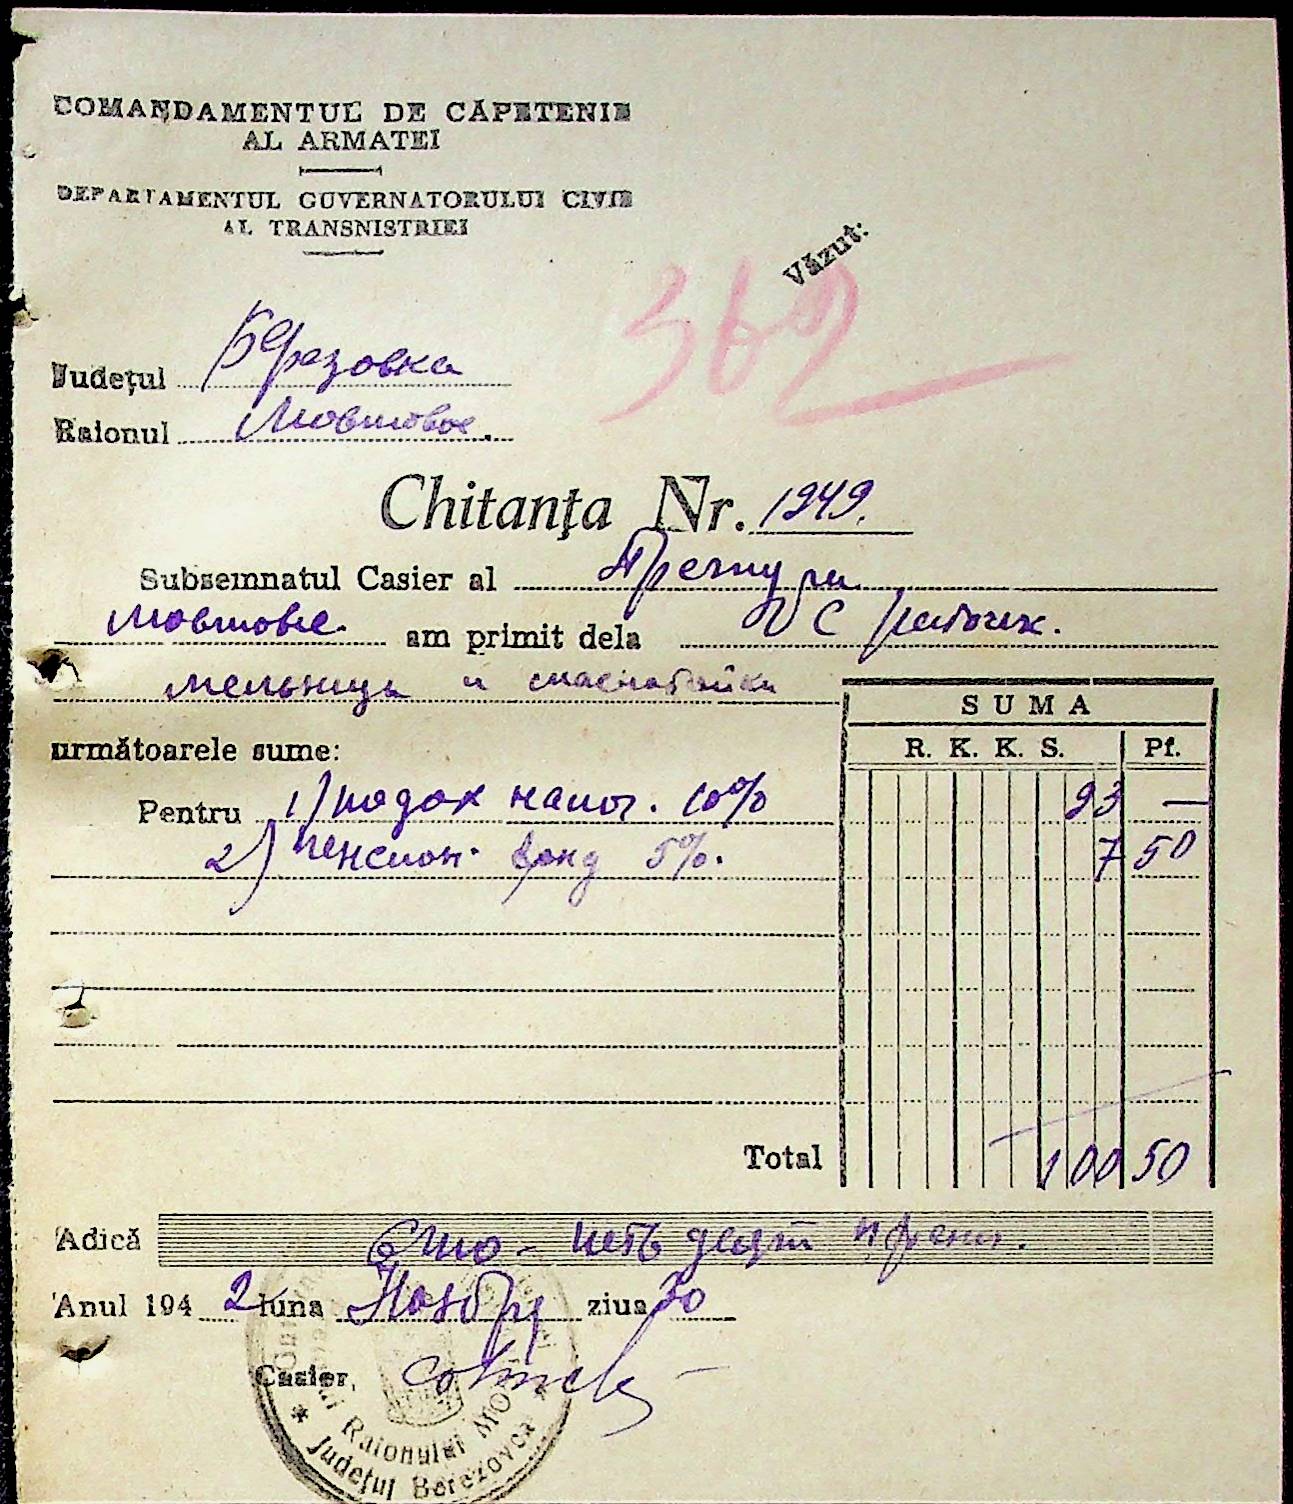 COMANDAMENTUL DE CĂPETENIE
AL ARMATEI
DEPARTAMENTUL GUVERNATORULUI CIVIL
AL TRANSNISTRIEI
Văzut:
362
Județul Березовка
Raionul Мовтовое
Chitanța Nr. 1949.
Subsemnatul Casier al Претуры
Мовтовое am primit dela с работник.
мельницы и маслобойки
SUMA
următoarele sume:
R. K. K. S. Pf.
Pentru 1) подох налог. 10% 93 —
2) Пенсион. фонд 5%. 7 50
Total 100 50
Adică Сто - пять десят пфен.
Anul 1942 luna Ноябрь ziua 30
Casier,
Raionului
* Județul Berezovca *